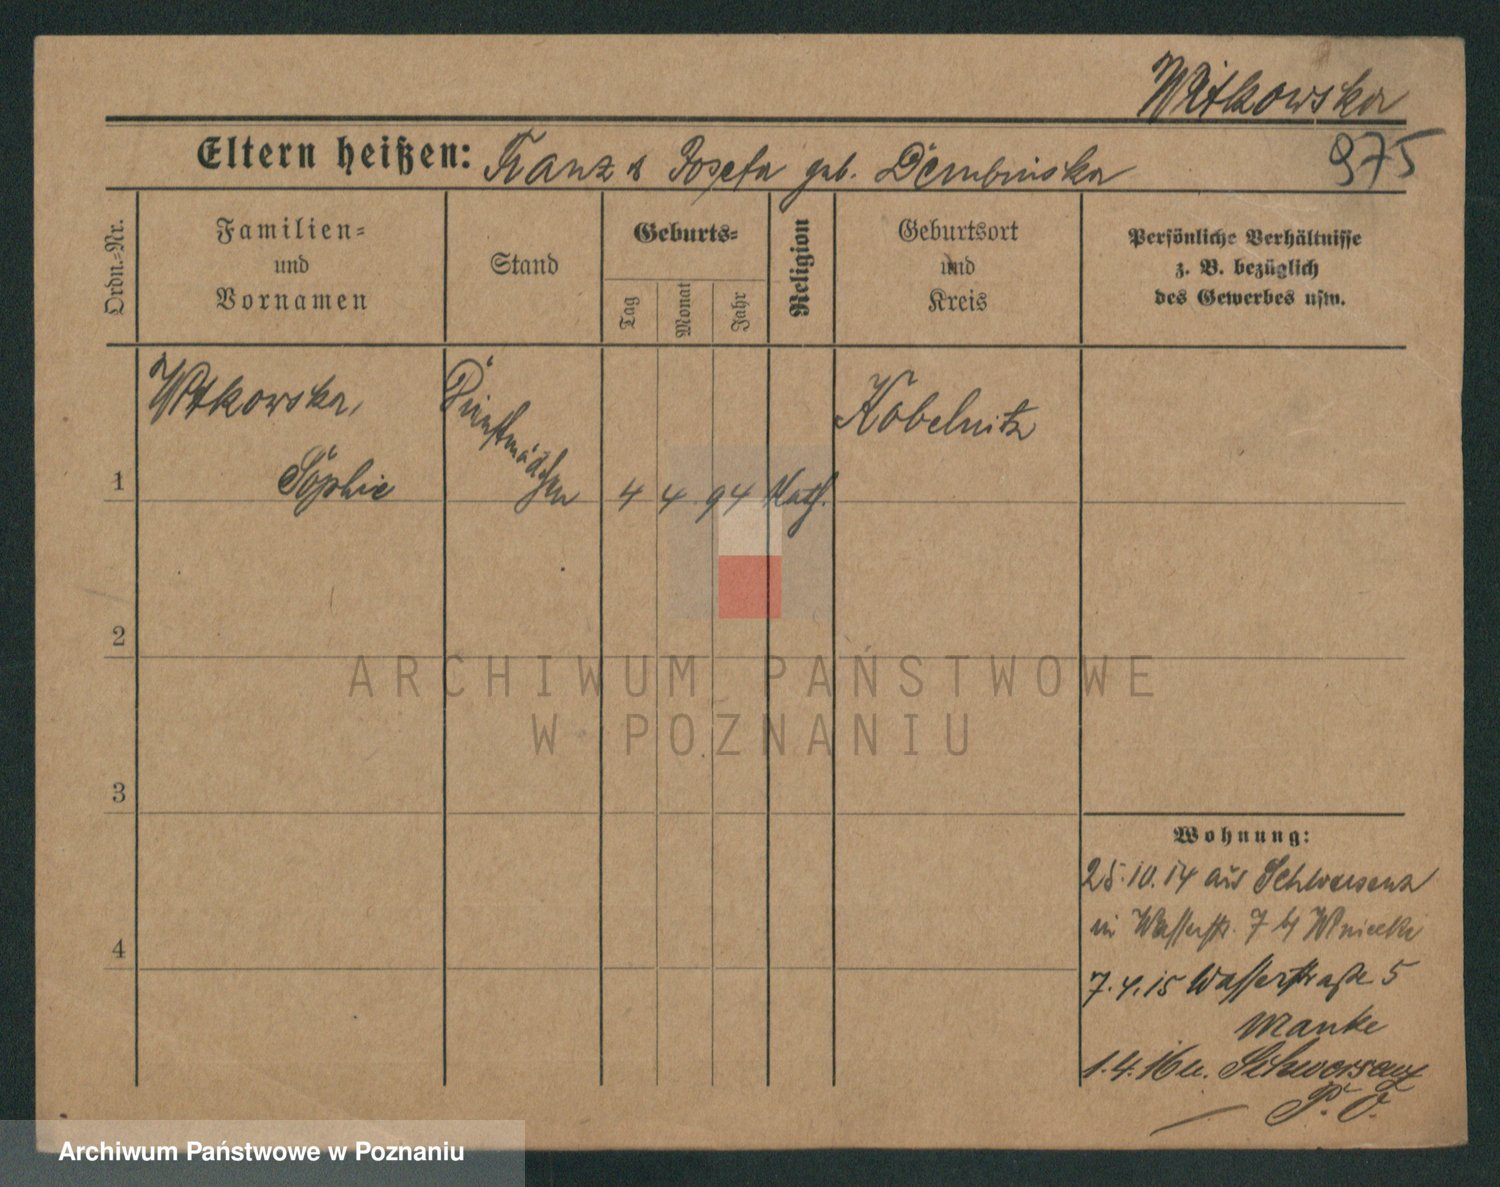 Witkowska
975
Eltern heißen: Franz & Josefa geb. Dembinska
Ordn.-Nr.
Familien-
und
Vornamen
Stand
Geburts-
Tag
Monat
Jahr
Religion
Geburtsort
und
Kreis
Persönliche Verhältnisse
z. B. bezüglich
des Gewerbes usw.
1
Witkowska,
Sophie
Dienstmädchen
4 4. 94 Kath.
Kobelnitz
2
3
4
Wohnung:
25.10.14 aus Schwersenz
in Wasserstr. 7 bei
7.4.15 Wasserstraße 5
Manke
1.4.16 n. Schwersenz
P. O.
ARCHIWUM PAŃSTWOWE
W POZNANIU
Archiwum Państwowe w Poznaniu